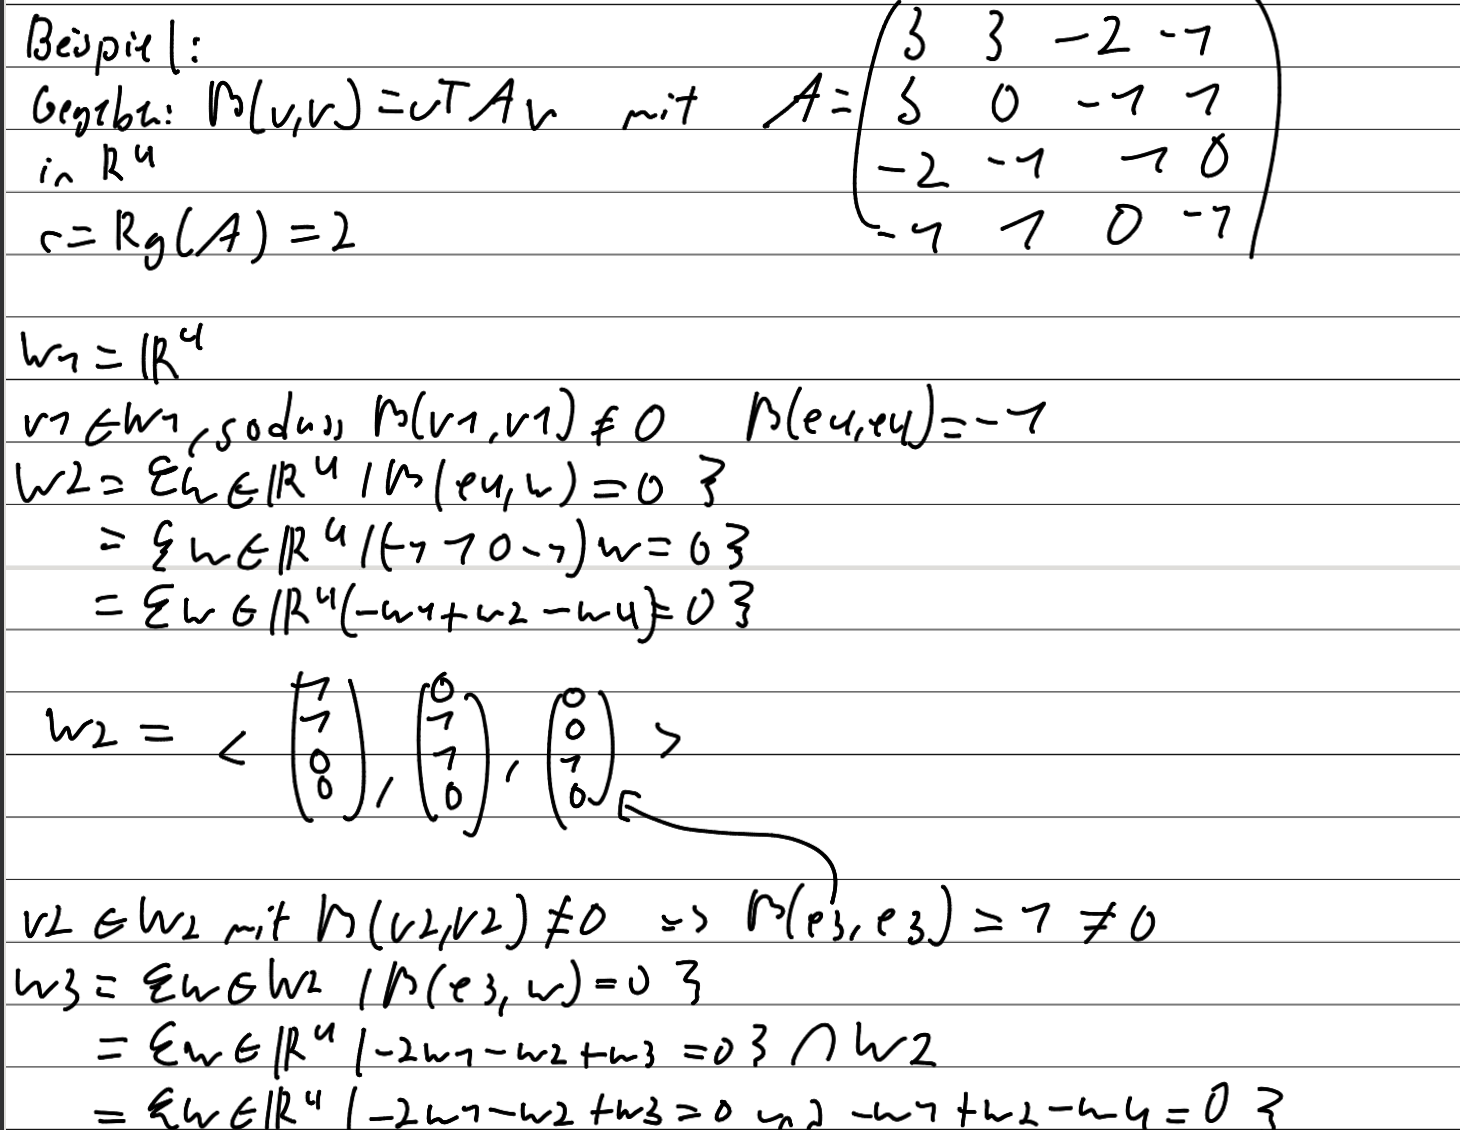 Beispiel:
Gegeben: β(v,v)=vTAv mit A= (3 3 -2 -1
3 0 -1 1
-2 -1 1 0
-1 1 0 -1)
in R4
r=Rg(A)=2
W1=ℝ4
v1∈W1, sodass β(v1,v1)≠0 β(e4,e4)=-1
W2={w∈ℝ4|β(e4,w)=0}
={w∈ℝ4|(-1 1 0 -1)w=0}
={w∈ℝ4(-w1+w2-w4)=0}
W2 = < (1 1 0 0), (0 1 1 0), (0 0 1 0) >
v2∈W2 mit β(v2,v2)≠0 => β(e3,e3)=1≠0
W3={w∈W2|β(e3,w)=0}
={w∈ℝ4|-2w1-w2+w3=0}∩W2
={w∈ℝ4|-2w1-w2+w3=0 und -w1+w2-w4=0}